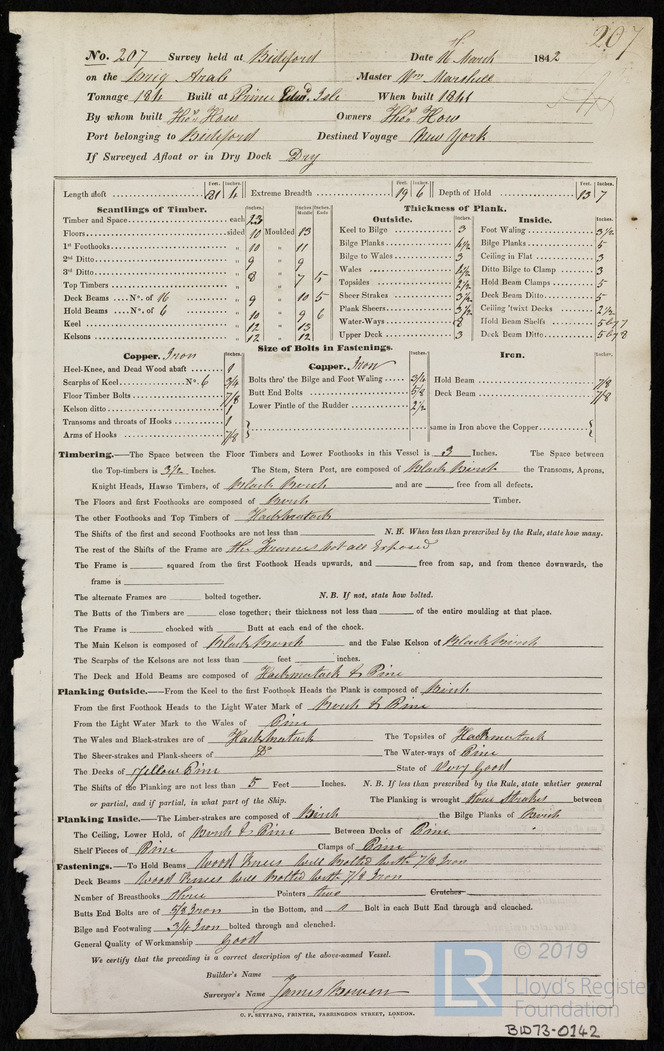 207
No. 207 Survey held at Bideford Date 16th March 1842
on the Brig Arab Master Wm Marshall
Tonnage 184 Built at Prince Edwd Isle When built 1841
By whom built Thos How Owners Thos How
Port belonging to Bideford Destined Voyage New York
If Surveyed Afloat or in Dry Dock Dry
Feet. Inches. Feet. Inches. Feet. Inches.
Length aloft 81 4 Extreme Breadth 19 6 Depth of Hold 13 7
Scantlings of Timber. Inches. Inches Middle Inches Ends Thickness of Plank.
Outside. Inches. Inside. Inches.
Timber and Space each 23
Floors sided 10 Moulded 13
1st Foothooks „ 10 „ 11
2nd Ditto „ 9 „ 9
3rd Ditto „ 8 „ 7 5
Top Timbers „
Deck Beams No. of 16 „ 9 „ 10 5
Hold Beams No. of 6 „ 10 „ 9 6
Keel „ 12 „ 13
Kelsons „ 12 „ 12
Keel to Bilge 3
Bilge Planks 4½
Bilge to Wales 3
Wales 4½
Topsides 2½
Sheer Strakes 3½
Plank Sheers 3½
Water-Ways 8
Upper Deck 3
Foot Waling 3½
Bilge Planks 5
Ceiling in Flat 3
Ditto Bilge to Clamp 3
Hold Beam Clamps 5
Deck Beam Ditto 5
Ceiling 'twixt Decks 2½
Hold Beam Shelfs 5 by 7
Deck Beam Ditto 5 by 8
Size of Bolts in Fastenings.
Copper. Iron Inches.
Heel-Knee, and Dead Wood abaft 1
Scarphs of Keel No. 6 3/4
Floor Timber Bolts 7/8
Kelson ditto 1
Transoms and throats of Hooks 1
Arms of Hooks 7/8
Copper. Iron Inches.
Bolts thro' the Bilge and Foot Waling 3/4
Butt End Bolts 5/8
Lower Pintle of the Rudder 2½
Iron. Inches.
Hold Beam 7/8
Deck Beam 7/8
same in Iron above the Copper
Timbering.—The Space between the Floor Timbers and Lower Foothooks in this Vessel is 3 Inches. The Space between
the Top-timbers is 3½ Inches. The Stem, Stern Port, are composed of Black Birch the Transoms, Aprons,
Knight Heads, Hawse Timbers, of Black Birch and are free from all defects.
The Floors and first Foothooks are composed of Birch Timber.
The other Foothooks and Top Timbers of Hackmatack
The Shifts of the first and second Foothooks are not less than N.B. When less than prescribed by the Rule, state how many.
The rest of the Shifts of the Frame are The Frames not all Exposed
The Frame is squared from the first Foothook Heads upwards, and free from sap, and from thence downwards, the
frame is
The alternate Frames are bolted together. N.B. If not, state how bolted.
The Butts of the Timbers are close together; their thickness not less than of the entire moulding at that place.
The Frame is chocked with Butt at each end of the chock.
The Main Kelson is composed of Black Birch and the False Kelson of Black Birch
The Scarphs of the Kelsons are not less than feet inches.
The Deck and Hold Beams are composed of Hackmatack & Pine
Planking Outside.—From the Keel to the first Foothook Heads the Plank is composed of Birch
From the first Foothook Heads to the Light Water Mark of Birch & Pine
From the Light Water Mark to the Wales of Pine
The Wales and Black-strakes are of Hackmatack The Topsides of Hackmatack
The Sheer-strakes and Plank-sheers of Do The Water-ways of Pine
The Decks of Yellow Pine State of Very Good
The Shifts of the Planking are not less than 5 Feet Inches. N.B. If less than prescribed by the Rule, state whether general
or partial, and if partial, in what part of the Ship. The Planking is wrought three Strakes between
Planking Inside.—The Limber-strakes are composed of Birch the Bilge Planks of Birch
The Ceiling, Lower Hold, of Birch & Pine Between Decks of Pine
Shelf Pieces of Pine Clamps of Pine
Fastenings.—To Hold Beams Wood Knees Well Bolted with 7/8 Iron
Deck Beams Wood Knees Well Bolted with 7/8 Iron
Number of Breasthooks three Pointers two Crutches
Butts End Bolts are of 5/8 Iron in the Bottom, and 1 Bolt in each Butt End through and clenched.
Bilge and Footwaling 3/4 Iron bolted through and clenched.
General Quality of Workmanship Good
We certify that the preceding is a correct description of the above-named Vessel.
Builder's Name
Surveyor's Name James Bowen
C. F. SEYFANG, PRINTER, FARRINGDON STREET, LONDON.
LR © 2019
Lloyd's Register
Foundation
BID73-0142